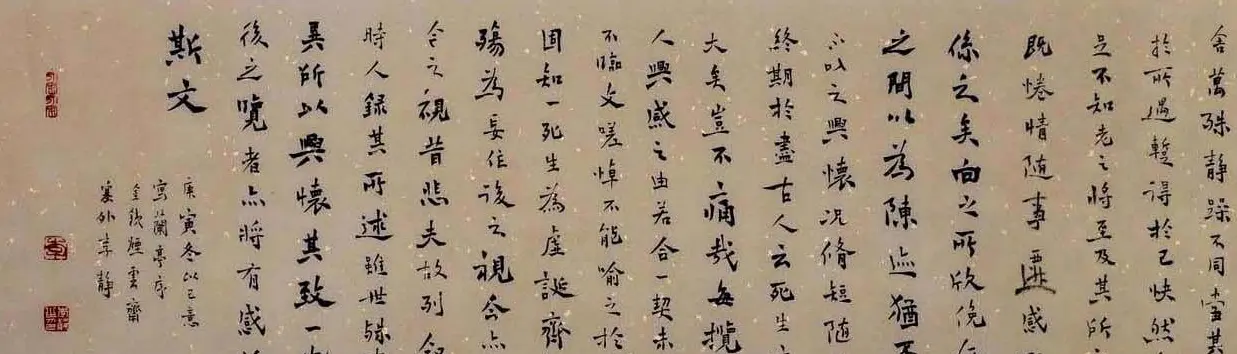 舍萬殊静躁不同當其
於所遇暫得於己快然
足不知老之將至及其所
既惓情隨事遷感
係之矣向之所欣俛仰
之間以為陳迹猶不
不以之興懷況脩短隨
終期於盡古人云死生
大矣豈不痛哉每攬
人興感之由若合一契未
不臨文嗟悼不能喻之於
固知一死生為虛誕齊
殤為妄作後之視今亦
今之視昔悲夫故列叙
時人録其所述雖世殊
異所以興懷其致一也
後之覽者亦將有感於
斯文
庚寅冬以己意
寫蘭亭序
煙雲齋
塞外李静